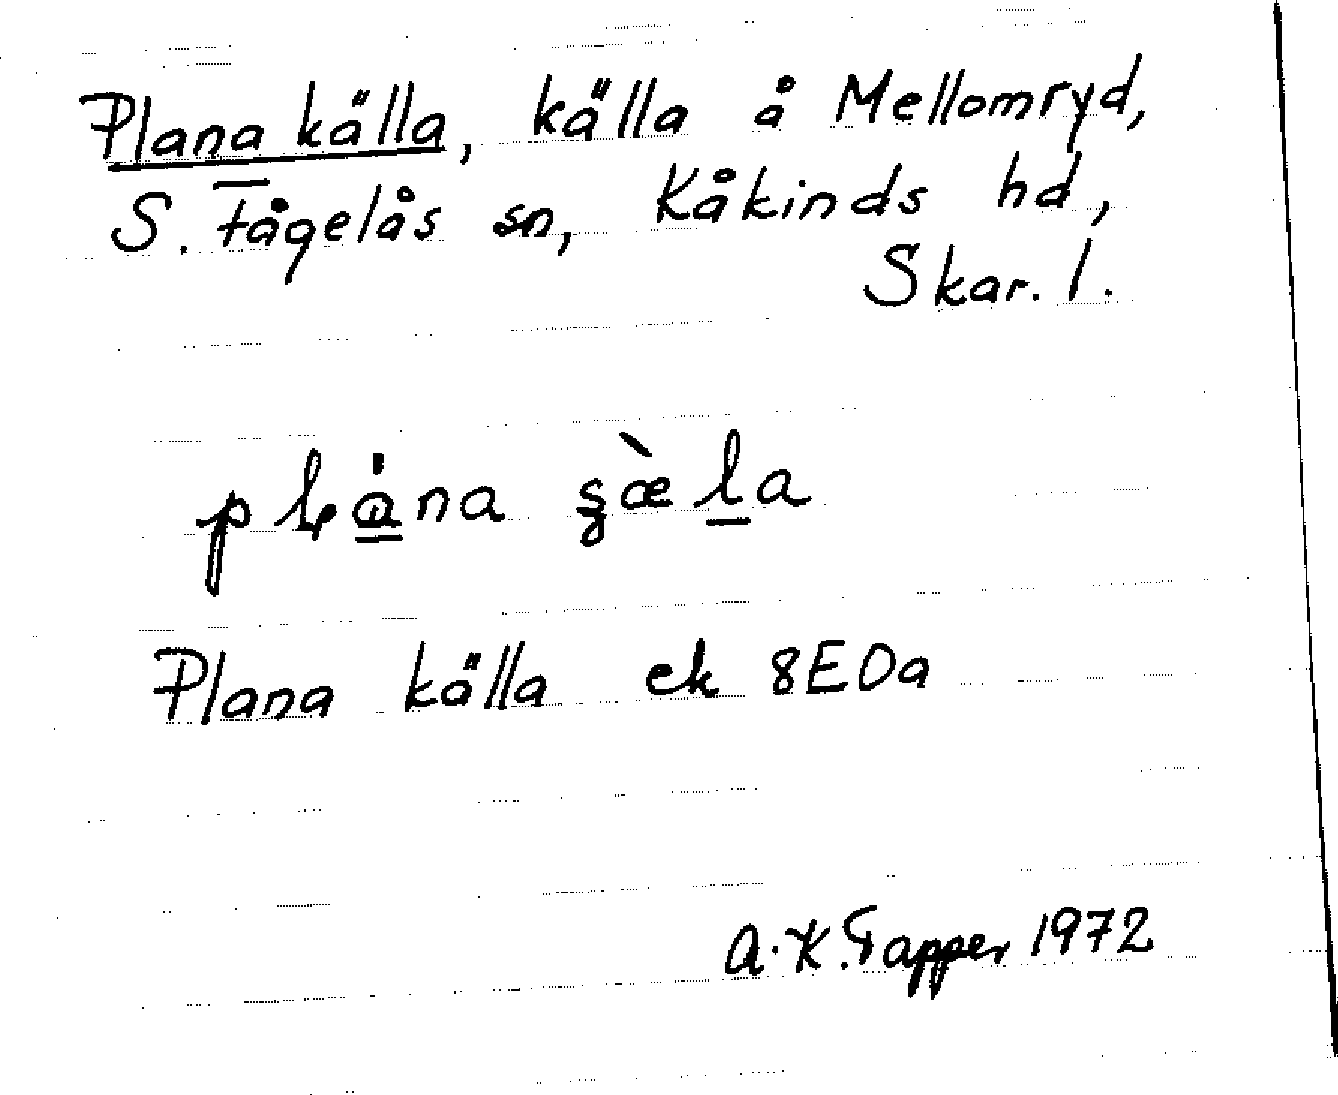 Plana källa, källa å Mellomryd,
S. Fågelås sn, Kåkinds hd,
Skar. l.
Plana källa ek 8E0a
A.K. Tapper 1972